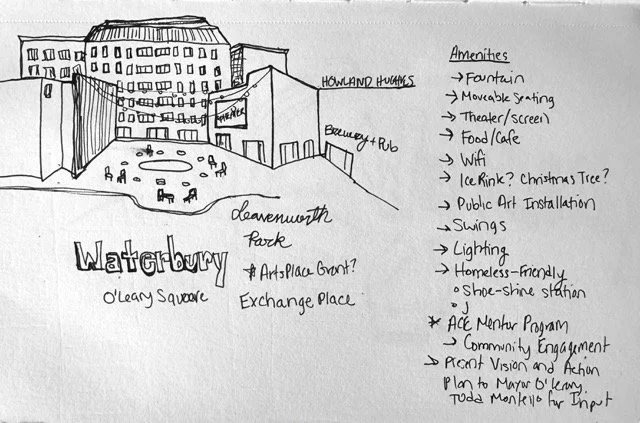 HOWLAND HUGHES
THEATER
Brewery + Pub
Leavenworth
Park
Waterbury
ArtsPlace Grant?
O'Leary Square
Exchange Place
Amenities
→ Fountain
→ Moveable Seating
→ Theater/screen
→ Food/Cafe
→ Wifi
→ Ice Rink? Christmas Tree?
→ Public Art Installation
→ Swings
→ Lighting
→ Homeless-Friendly
o Shoe-shine station
o
* ACE Mentor Program
→ Community Engagement
→ Present Vision and Action
Plan to Mayor O'Leary,
Todd Montello for Input